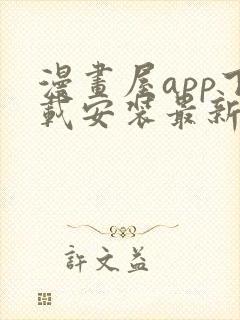 漫畫屋app下
載安裝最新
許文益